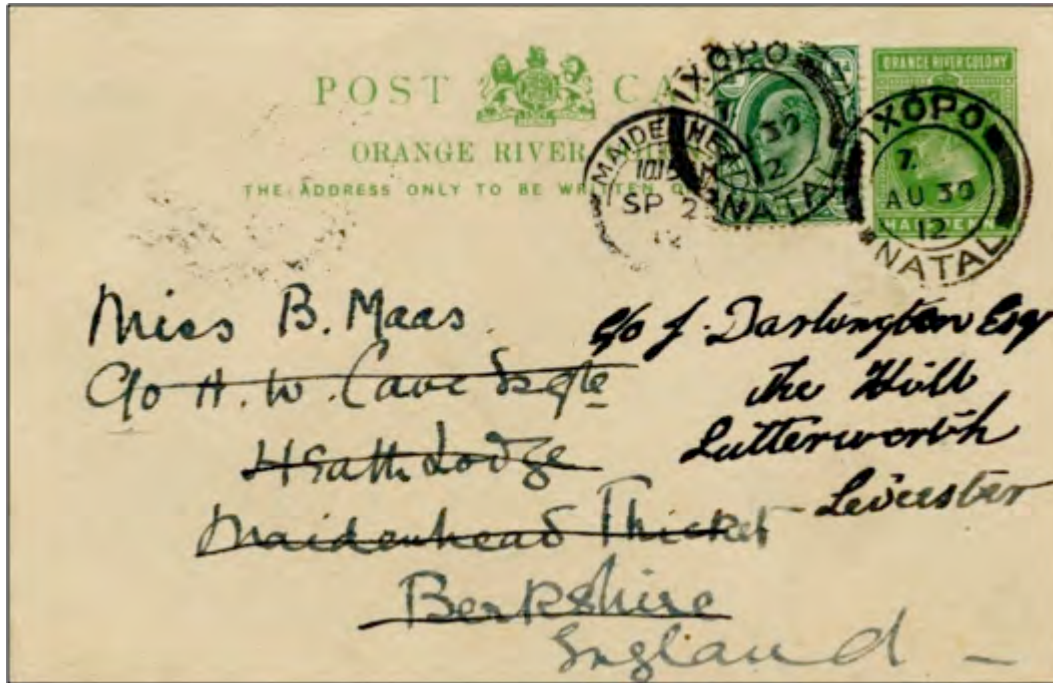 POST CA
ORANGE RIVER
THE ADDRESS ONLY TO BE WRITTEN
ORANGE RIVER COLONY
HALF PENNY
IXOPO
30
12
NATAL
IXOPO
7.
AU 30
12
NATAL
MAIDENHEAD
SP 2
12
Miss B. Maas
C/o H. W. Cave Esqre
Heath Lodge
Maidenhead Thicket
Berkshire
England
C/o J. Darlington Esq
The Hill
Lutterworth
Leicester